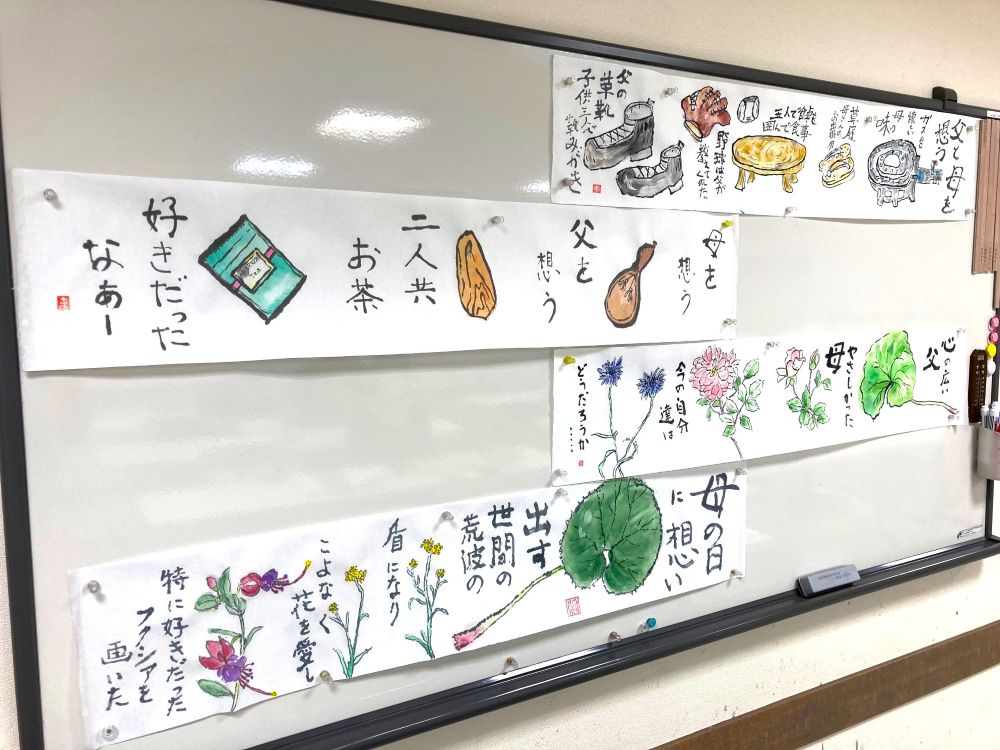 父と母を
想う
ガス台
懐しい
母の
味の
草履
お揃い
五人で食卓を
囲んで食事
野球は父が
教えてくれた
父の
革靴
子供三人で
靴みがき
母を
想う
父を
想う
二人共
お茶
Tea
好きだった
なぁー
心の広い
父
やさしかった
母
今の自分
達は
どうだろうか……
母の日
に想い
出す
世間の
荒波の
盾になり
こよなく
花を愛し
特に好きだった
フクシアを
画いた